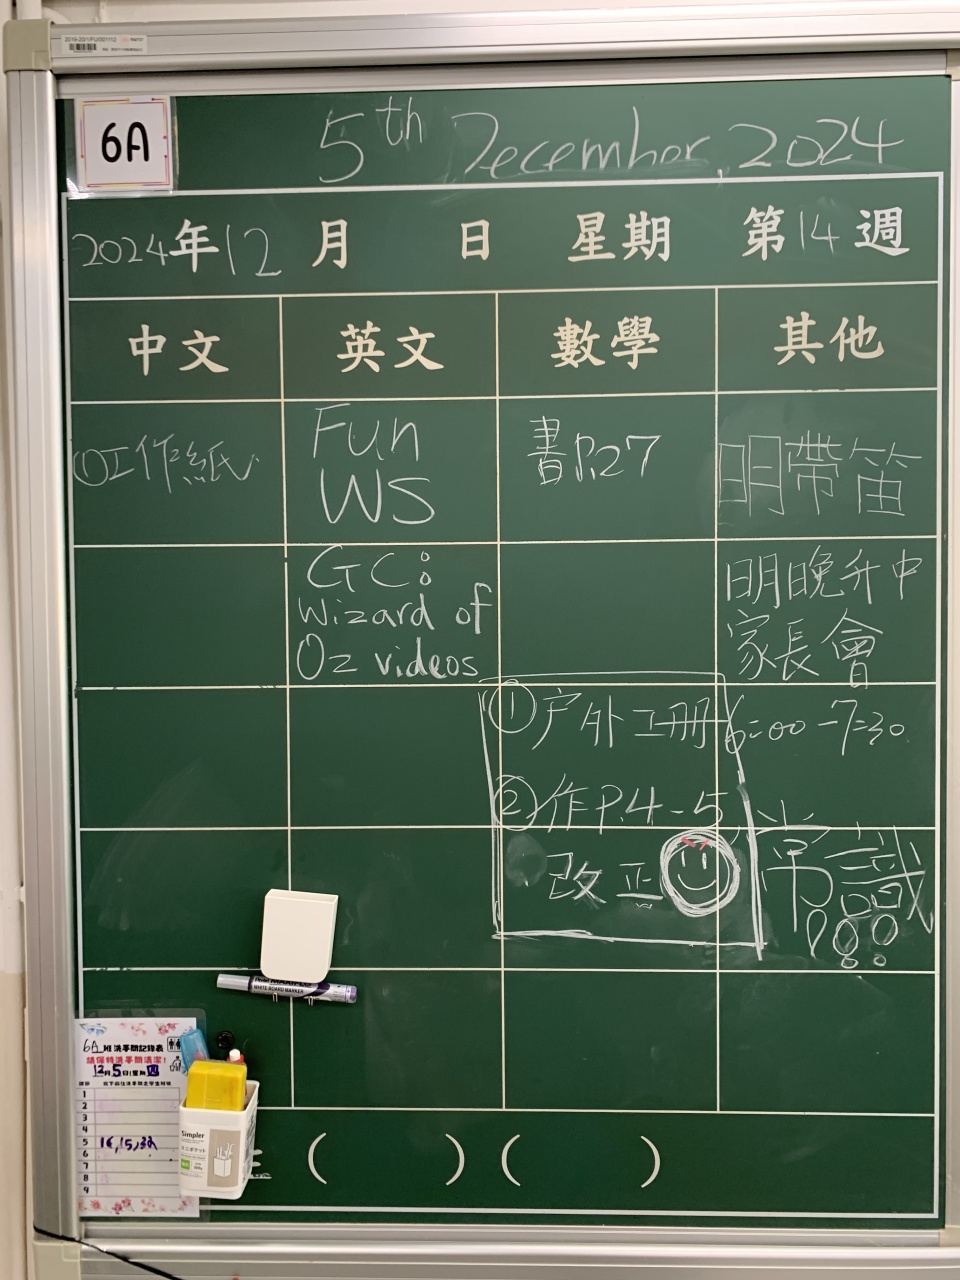 2019-20/1/FU/001112
6A
5th December, 2024
2024年12月 日 星期 第14週
中文 英文 數學 其他
①工作紙
Fun
WS
書P.27
明帶笛
GC:
Wizard of
Oz videos
明晚升中
家長會
6:00-7:30
①户外工冊
②作P.4-5
改正
常識
6A 班洗手間記錄表
請保持洗手間清潔!
12月5日(星期四)
1
2
3
4
5 16,15,32
6
7
8
9
WHITE BOARD MARKER
Simpler
( ) ( )